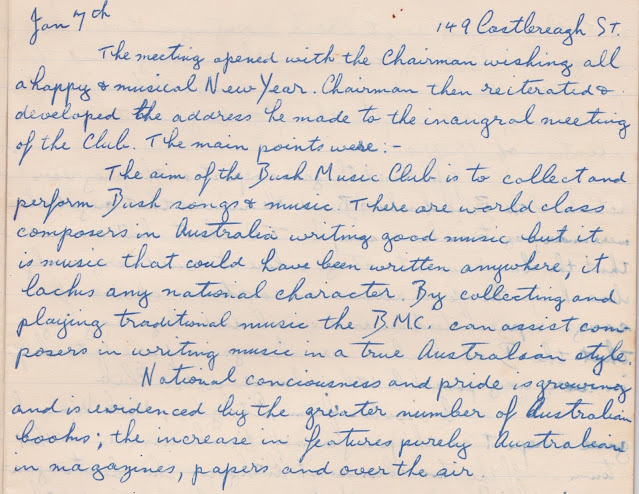 Jan 7th 149 Castlereagh St.
The meeting opened with the Chairman wishing all
a happy & musical New Year. Chairman then reiterated &
developed the address he made to the inaugral meeting
of the Club. The main points were:-
The aim of the Bush Music Club is to collect and
perform Bush songs & music There are world class
composers in Australia writing good music but it
is music that could have been written anywhere, it
lacks any national character. By collecting and
playing traditional music the B.M.C. can assist com-
posers in writing music in a true Australian style.
National conciousness and pride is growing
and is evidenced by the greater number of Australian
books; the increase in features purely Australian
in magazines, papers and over the air.